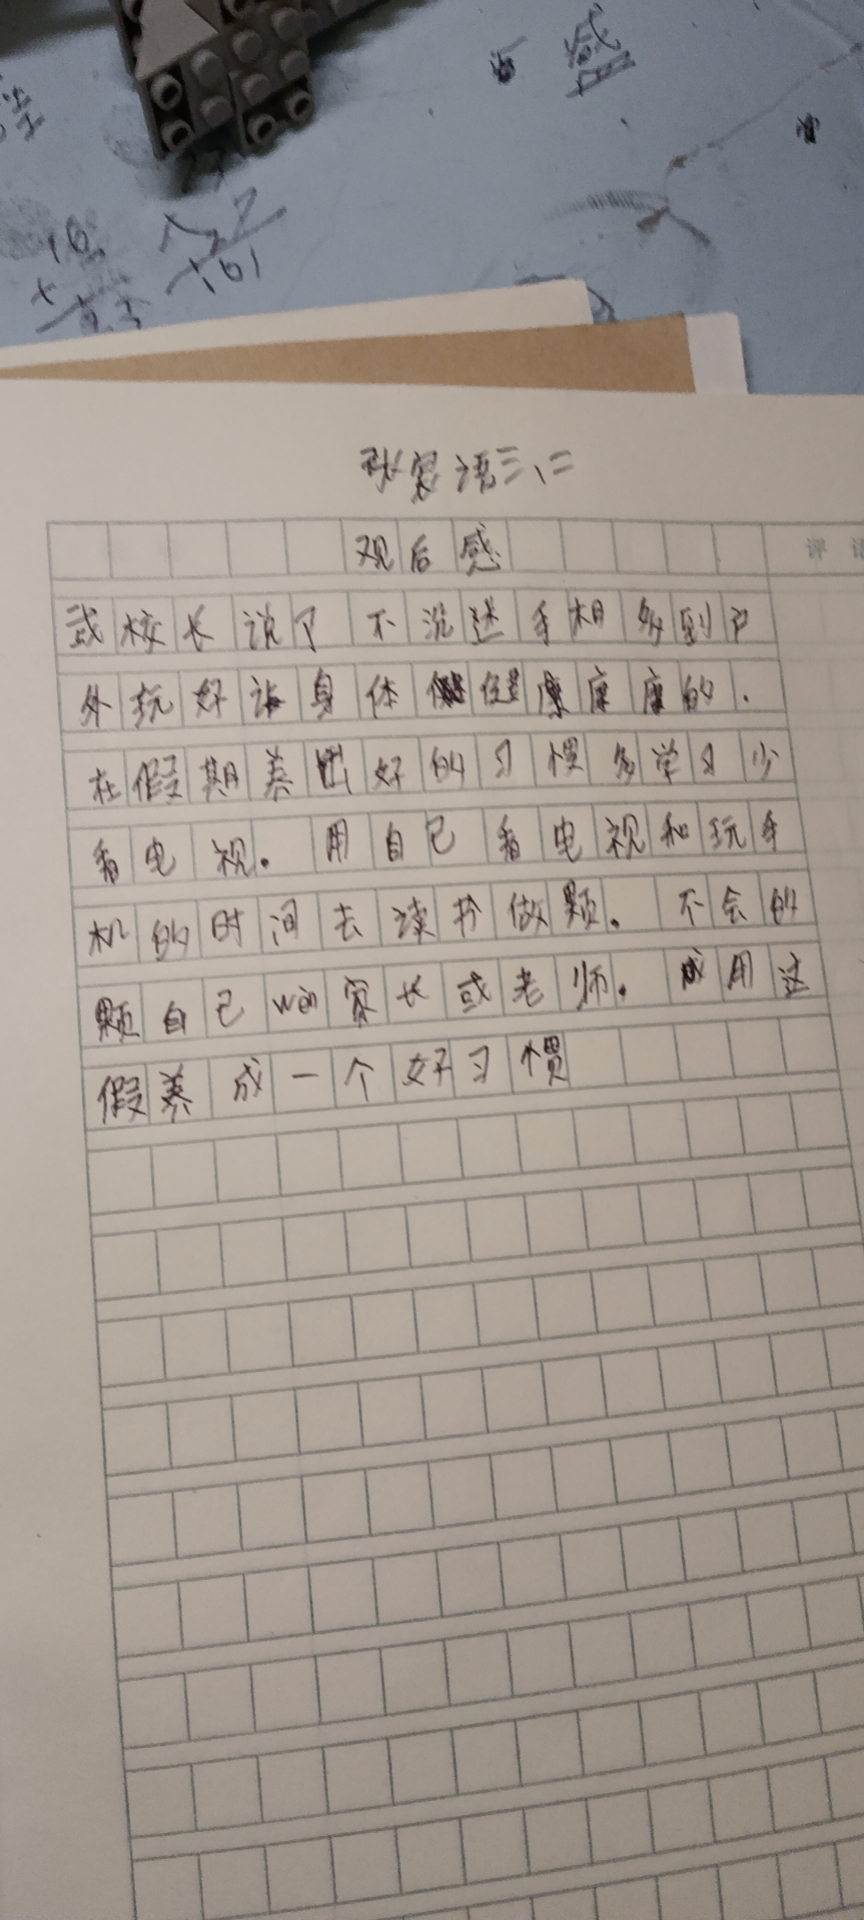 感
张 语三、二
观后感
评语
或校长说了不沉迷手相多到户
外玩好让身体健 的.
在假期养出好的习惯多学习少
看电视。用自己看电视和玩手
机的时间去读书做题。不会的
题自己wèn家长或老师。 用这
假养成一个好习惯